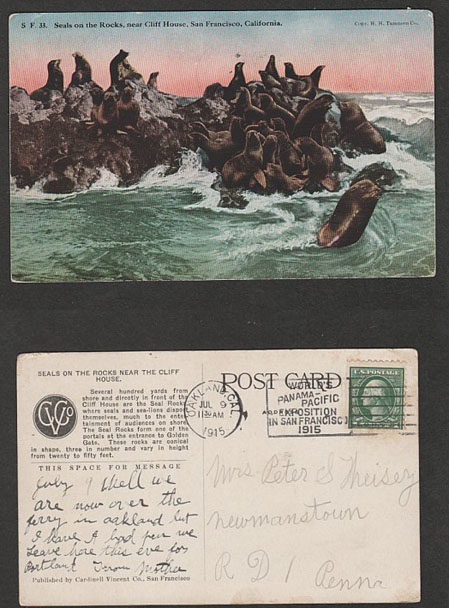 S F. 33. Seals on the Rocks, near Cliff House, San Francisco, California.
SEALS ON THE ROCKS NEAR THE CLIFF
HOUSE.
Several hundred yards from
shore and directly in front of the
Cliff House are the Seal Rocks
where seals and sea-lions disport
themselves, much to the enter-
tainment of audiences on shore.
The Seal Rocks form one of the
portals at the entrance to Golden
Gate. These rocks are conical
in shape, three in number and vary in height
from twenty to fifty feet.
THIS SPACE FOR MESSAGE
July 9 Well we
are now over the
ferry in oakland but
I have a bad pen we
Leave here this eve for
Portland From Mother
Published by Cardinell Vincent Co., San Francisco
POST CARD
OAKLAND, CAL.
JUL 9
AM
1915
WORLD'S
PANAMA-PACIFIC
EXPOSITION
IN SAN FRANCISCO
1915
U.S. POSTAGE
Mrs Peter S
Newmanstown
R D 1 Penna